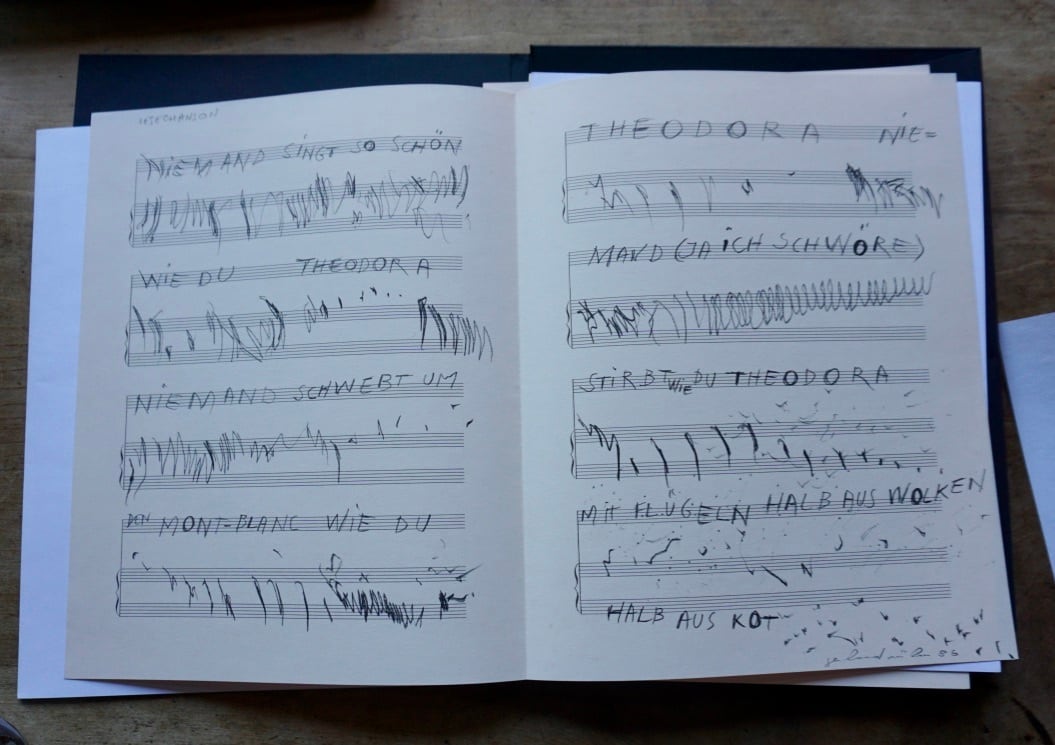 NIEMAND SINGT SO SCHÖN
WIE DU THEODORA
NIEMAND SCHWEBT UM
DEN MONT-BLANC WIE DU
THEODORA NIE=
MAND (JA ICH SCHWÖRE)
STIRBT WIE DU THEODORA
MIT FLÜGELN HALB AUS WOLKEN
HALB AUS KOT